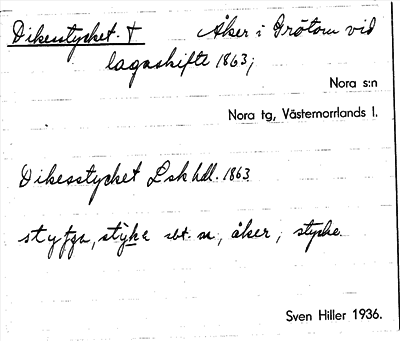 Dikesstycket. † Åker i Grötom vid
lagaskifte 1863;
Nora s:n
Nora tg, Västernorrlands l.
Dikesstycket Lskhdl. 1863
åker, stycke.
Sven Hiller 1936.